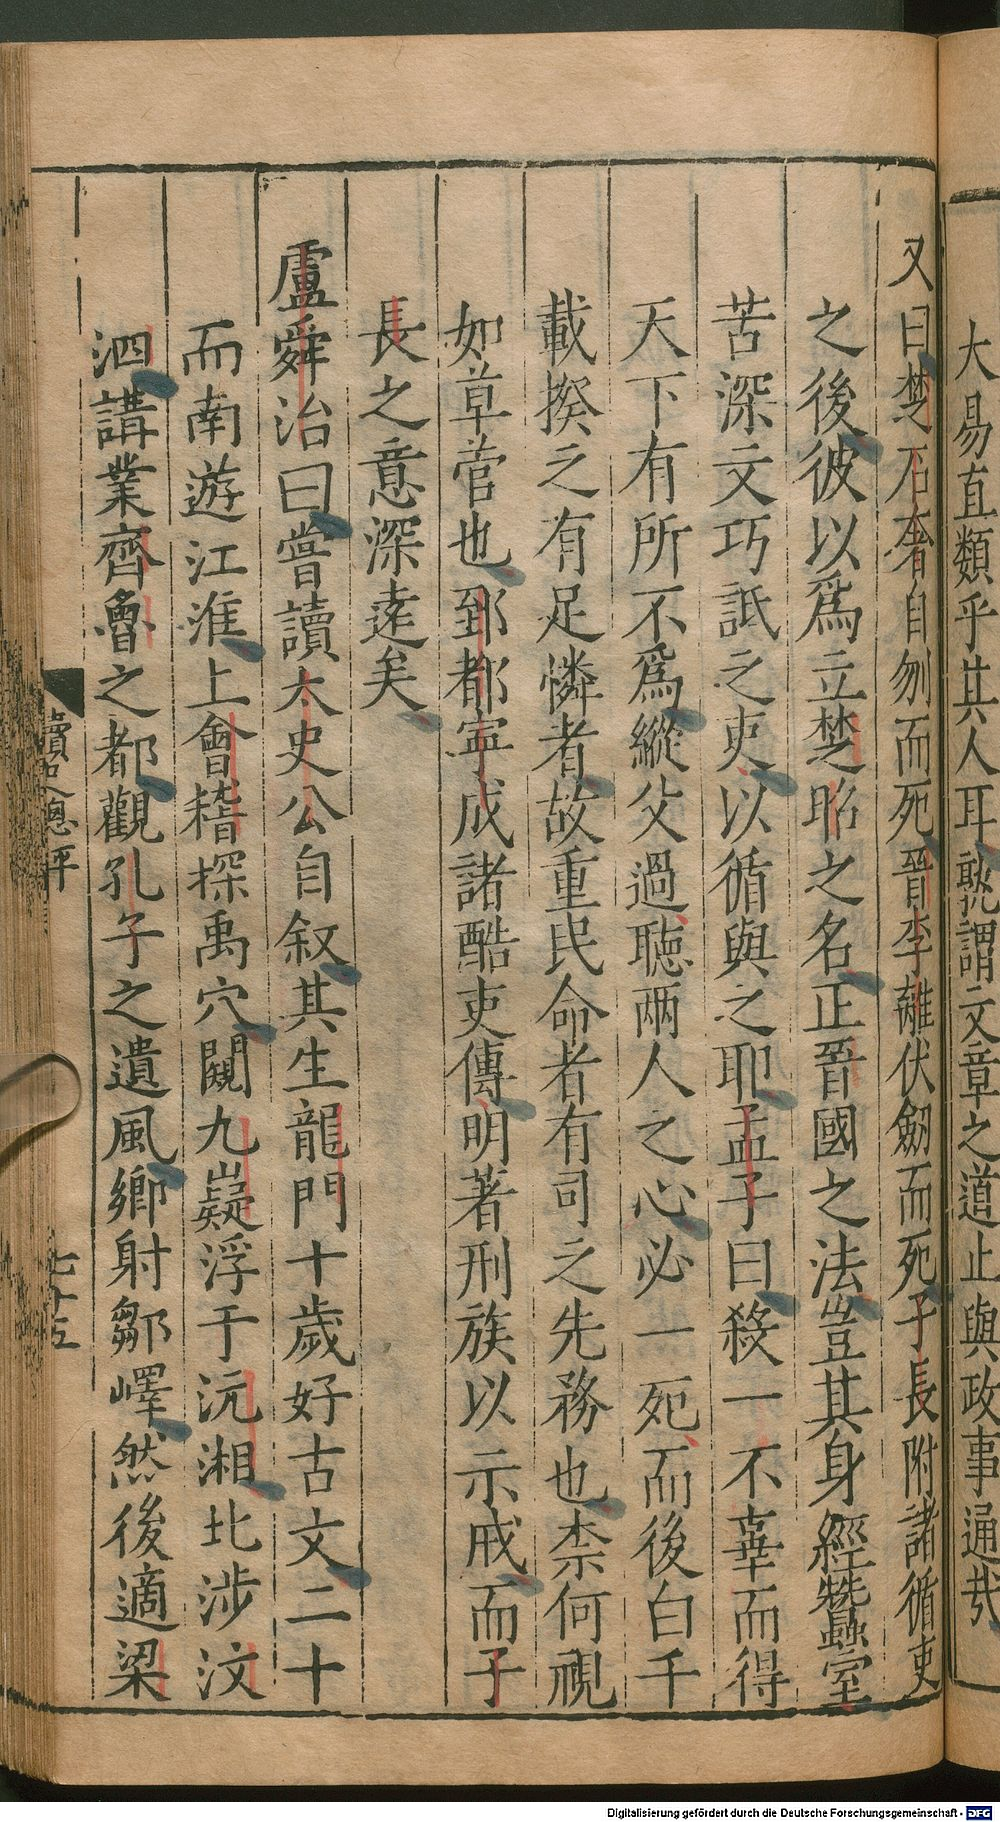 大易直類乎其人耳孰謂文章之道止與政事通哉
又曰楚石奢自刎而死晉李離伏劒而死子長附諸循吏
之後彼以爲立楚昭之名正晉國之法豈其身經蠶室
苦深文巧詆之吏以循與之耶孟子曰殺一不辜而得
天下有所不爲縱父過聽兩人之心必一死而後白千
載揆之有足憐者故重民命者有司之先務也柰何視
如草菅也郅都寜成諸酷吏傳明著刑族以示戒而子
長之意深逺矣
盧舜治曰嘗讀太史公自叙其生龍門十歲好古文二十
而南遊江淮上會稽探禹穴闚九嶷浮于沅湘北涉汶
泗講業齊魯之都觀孔子之遺風鄉射鄒嶧然後適梁
讀史總評
七十五
Digitalisierung gefördert durch die Deutsche Forschungsgemeinschaft - DFG